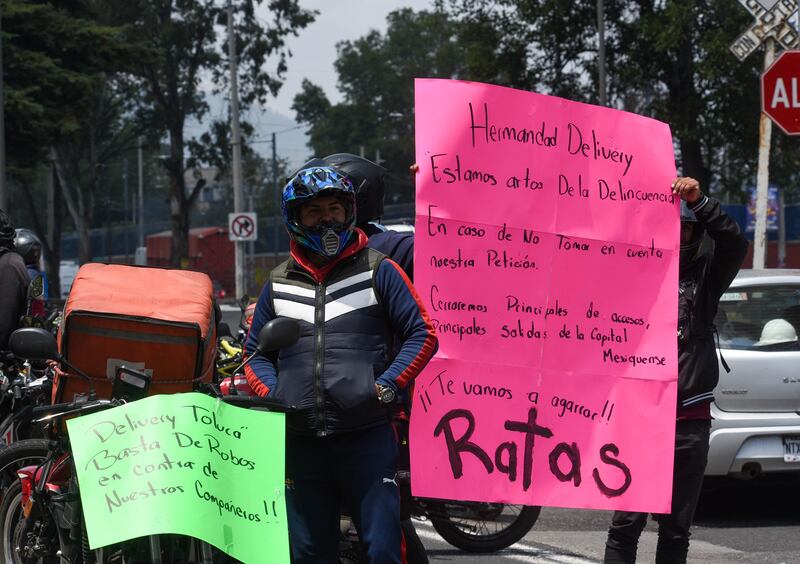 Hermandad Delivery
"Estamos artos De la Delincuencia
En caso de No Tomar en cuenta
nuestra Petición.
Cerraremos Principales de accesos,
Principales Salidas de la Capital
Mexiquense
¡¡Te vamos a agarrar!!
Ratas
Delivery Toluca
Basta De Robos
en contra de
Nuestros Compañeros!!
AL